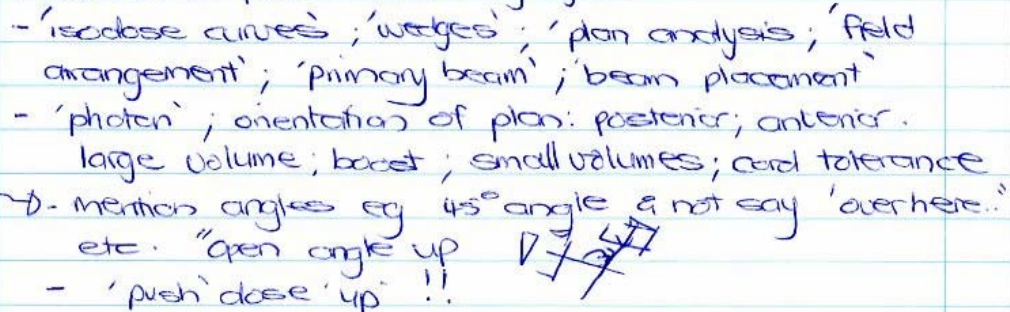 - 'isodose curves' ; 'wedges' ; 'plan analysis ; 'field
arrangement' ; 'primary beam' ; 'beam placement'
- 'photon' ; orientation of plan: posterior; anterior.
large volume; boost ; small volumes; cord tolerance
- mention angles eg 45° angle & not say 'over here..'
etc. "open angle up
- 'push' dose 'up' !!